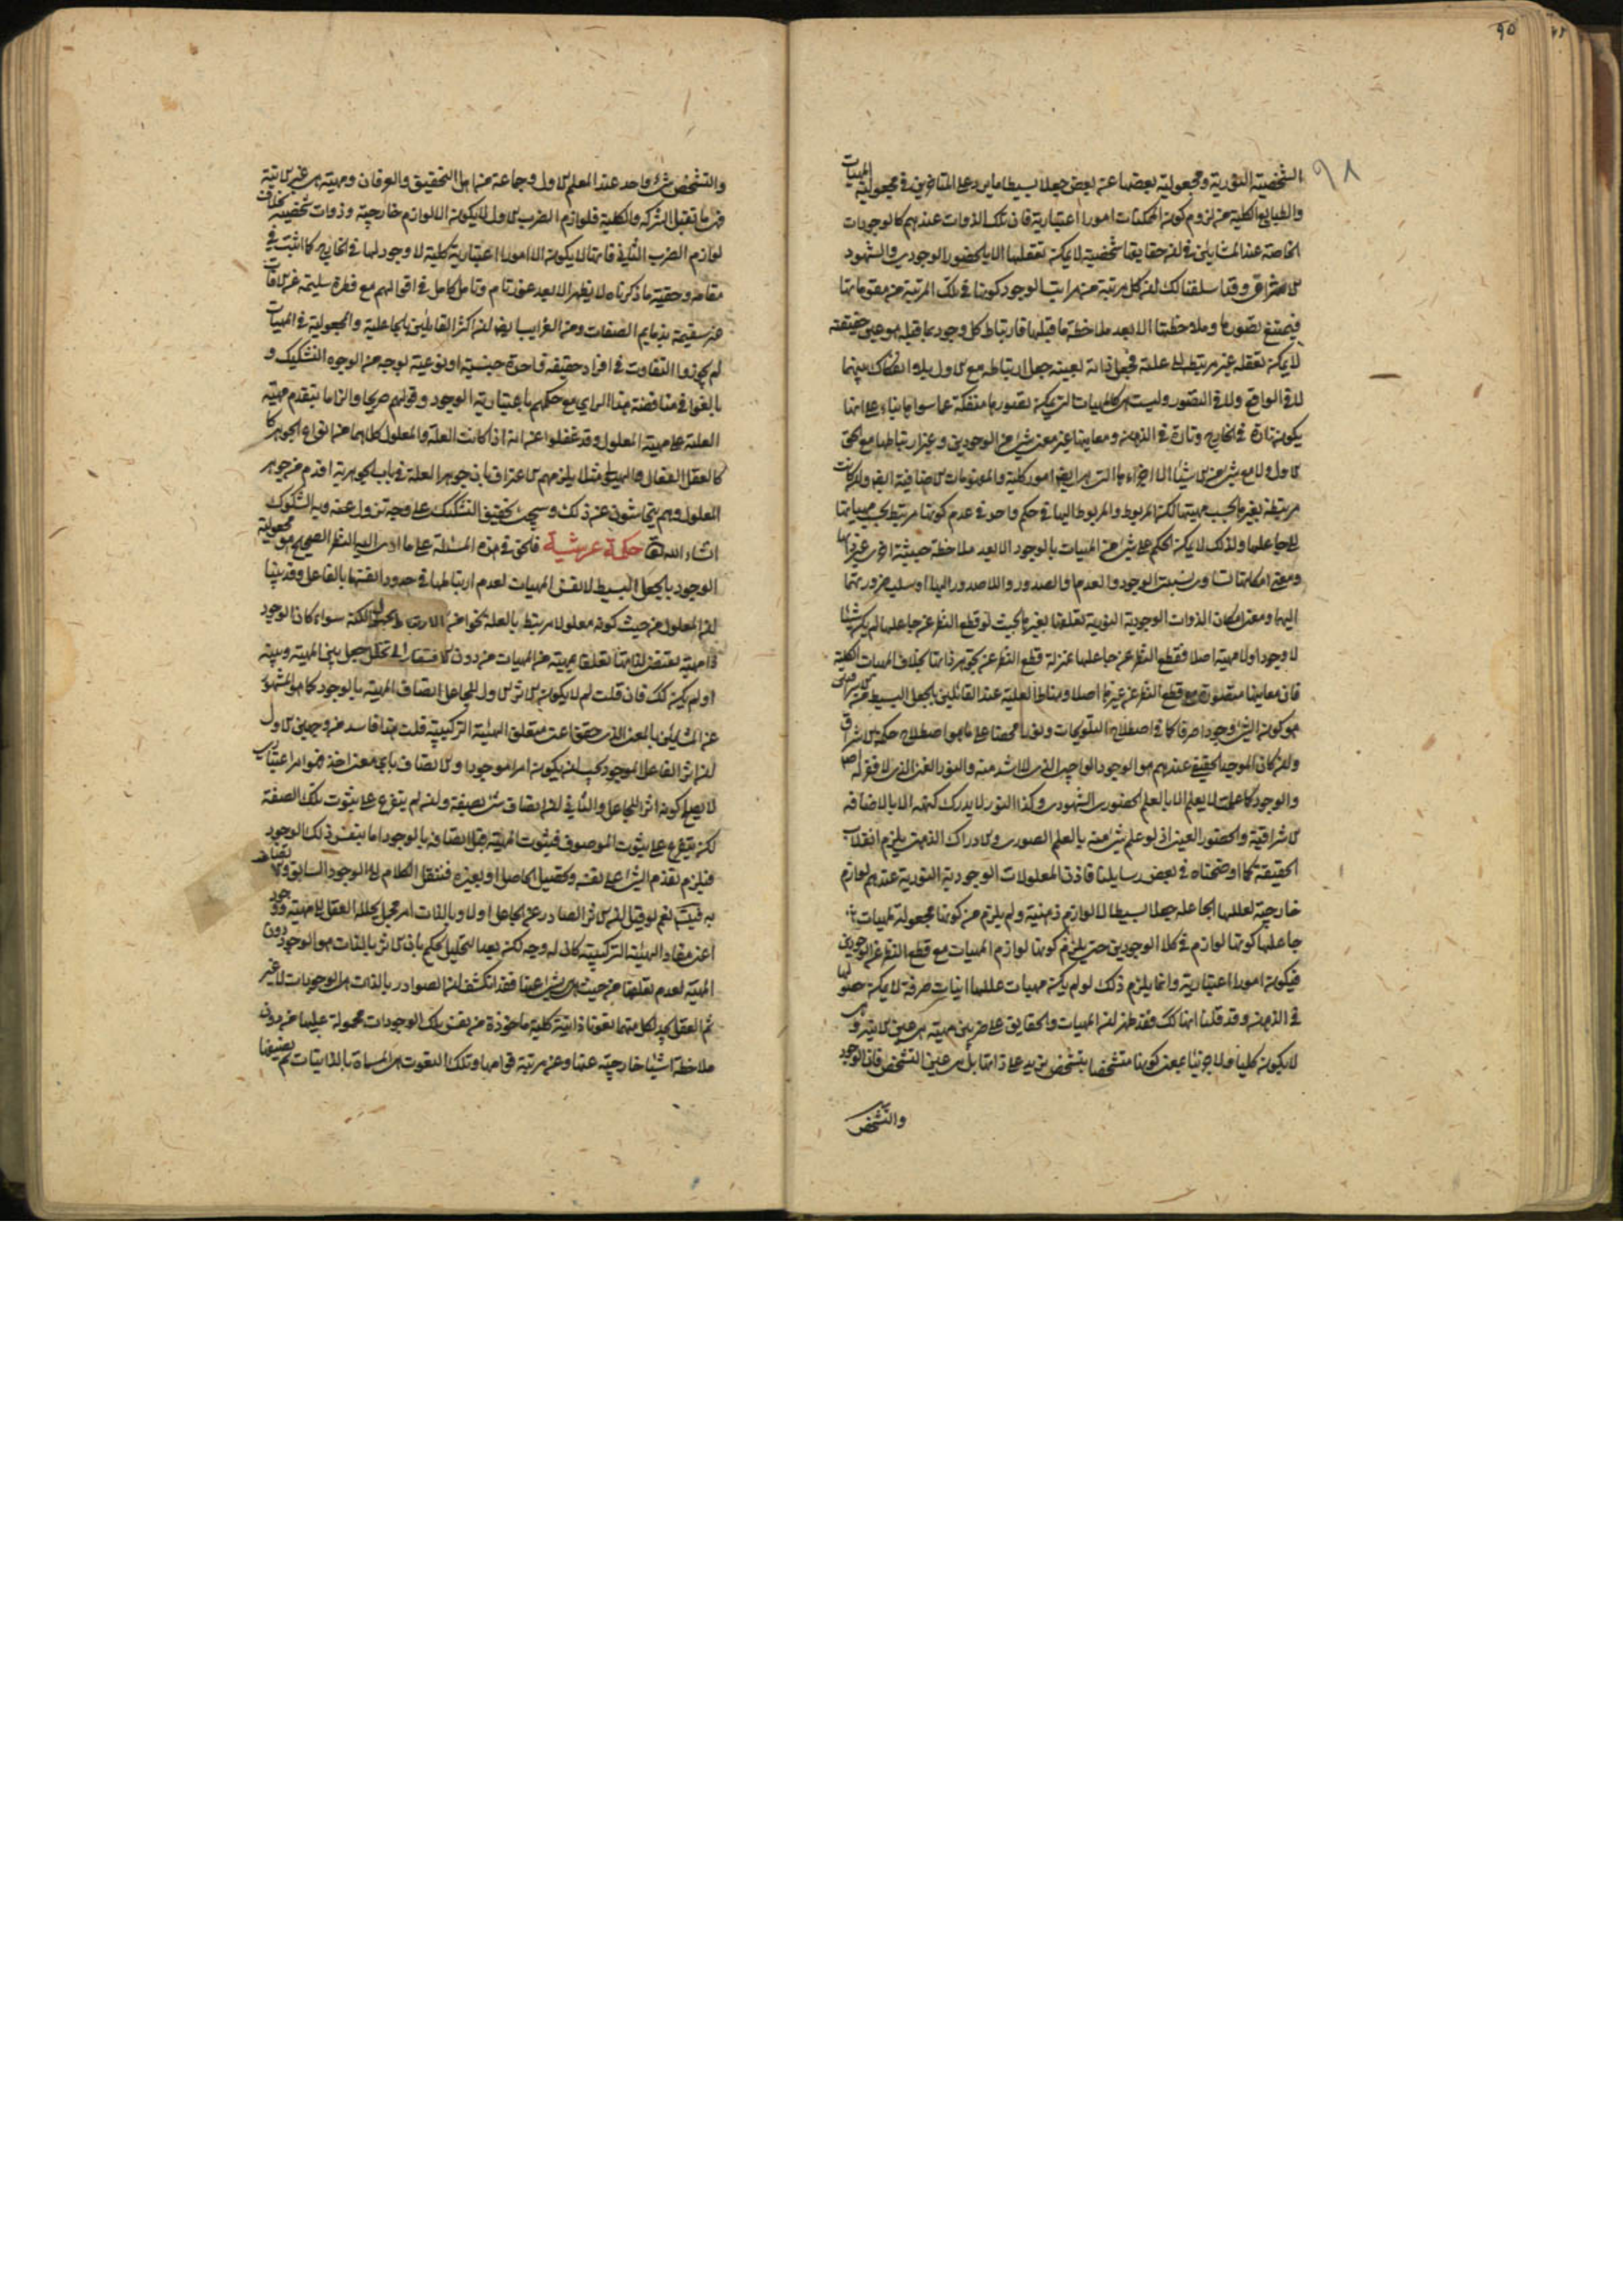 ٩٥
٩٨
الشخصية النورية ومجعولية بعضها عن بعض جعلا بسيطا ما يرد على المتاخرين في مجعولية المهيات
والطبايع الكلية من لزوم كون الممكنات امورا اعتبارية فان تلك الذوات عندهم كالوجودات
الخاصة عند المشايين في ان حقايقها شخصية لا يمكن تعقلها الا بالحضور الوجودي والشهود
الاشراقي وقد اسلفنا لك ان كل مرتبة من مراتب الوجود كونها في تلك المرتبة من مقوماتها
فيمتنع تصورها وملاحظتها الا بعد ملاحظة ما قبلها فارتباط كل وجود بما قبله هو عين حقيقته
لا يمكن تعقله غير مرتبط الى علته فجعل ذاته بعينه جعل ارتباطه مع الاول بلا انفكاك بينهما
لا في الواقع ولا في التصور وليست هي كالمهيات التي يمكن تصورها منفكة عما سواها بناء على انها
يكون تارة في الخارج وتارة في الذهن ومعانيها غير معنى شيء من الوجودين وغير ارتباطها مع الحق
الاول ولا مع شيء من الاشياء الا اجزاءها التي هي ايضا امور كلية والمفهومات الاضافية ايضا وان كانت
مرتبطة بغيرها بحسب مهيتها لكن المربوط والمربوط اليها في حكم واحد في عدم كونها مرتبط بحسب مهياتها
الى جاعلها ولذلك لا يمكن الحكم على شيء من المهيات بالوجود الا بعد ملاحظة حيثية اخرى غير ذاتها
ومعنى امكانها تساوي نسبة الوجود والعدم والصدور واللاصدور اليها او سلب ضرورتهما
اليها ومعنى امكان الذوات الوجودية النورية تعلقها بغيرها بحيث لو قطع النظر عن جاعلها لم يكن شيئا
لا وجودا ولا مهية اصلا فقطع النظر عن جاعلها بمنزلة قطع النظر عن تجوهر ذاتها بخلاف المهيات الكلية
فان معانيها متصورة مع قطع النظر عن غيرها اصلا ومناط العلية عند القائلين بالجعل البسيط من الاشراقيين
هو كون الشيء وجودا صرفا كما في اصطلاح التلويحات ونورا محضا على ما هو اصطلاح حكمة الاشراق
وان كان الموجد الحقيقي عندهم هو الوجود الواجب الذي لا اشد منه والنور الغني الذي لا فقر له اصلا
والوجود كما علمت لا يعلم الا بالعلم الحضوري الشهودي وكذا النور لا يدرك كنهه الا بالاضافة
الاشراقية والحضور العيني اذ لو علم شيء منه بالعلم الصوري والادراك الذهني يلزم انقلاب
الحقيقة كما اوضحناه في بعض رسايلنا فاذن المعلولات الوجودية النورية عندهم لوازم
خارجية لعللها الجاعلة جعلا بسيطا لا لوازم ذهنية ولم يلزم من كونها مجعولة لمهيات
جاعلها كونها لوازم في كلا الوجودين حتى يلزم كونها لوازم المهيات مع قطع النظر عن الوجودين
فيكون امورا اعتبارية وانما يلزم ذلك لو لم يكن مهيات عللها انيات صرفة لا يمكن حصولها
في الذهن وقد قلنا انها كك فقد ظهر ان المهيات والحقايق على ضربين مهية هي عين الانية وهي
لا يكون كليا ولا جزئيا بمعنى كونها متشخصا بتشخص يزيد على ذاتها بل هي عين التشخص فان الوجود
والتشخص
والتشخص شيء واحد عند المعلم الاول وجماعة من اهل التحقيق والعرفان ومهية هي غير الانية
فهي ما تقبل الشركة والكلية فلوازم الضرب الاول لا يكون الا لوازم خارجية وذوات شخصية بخلاف
لوازم الضرب الثاني فانها لا يكون الا امورا اعتبارية كلية لا وجود لها في الخارج كما اثبت في
مقامه وحقية ما ذكرناه لا يظهر الا بعد غور تام وتامل كامل في اقوالهم مع فطرة سليمة عن الافات
غير سقيمة بذمايم الصفات ومن الغرايب ايضا ان اكثر القايلين بالجاعلية والمجعولية في المهيات
لم يجوزوا التفاوت في افراد حقيقة واحدة جنسية او نوعية بوجه من الوجوه التشكيك و
بالغوا في مناقضة هذا الراي مع حكمهم باعتبارية الوجود وقولهم صريحا والزاما بتقدم مهية
العلة على مهية المعلول وقد غفلوا عن انه اذا كانت العلة والمعلول كلاهما من انواع الجوهر كا
كالعقل الفعال والهيولى مثلا يلزمهم الاعتراف بان جوهر العلة في باب الجوهرية اقدم من جوهر
المعلول وهم يتحاشون عن ذلك وسيجيء تحقيق التشكيك على وجه تزول عنه ويه الشكوك
انشاء الله تعا حكمة عرشية فالحق في هذه المسئلة على ما ادى اليه النظر الصحيح هو مجعولية
الوجود بالجعل البسيط لا نفس المهيات لعدم ارتباطها في حدود انفسها بالفاعل وقد بينا
ان المعلول من حيث كونه معلولا مرتبط بالعلة نحوا من الارتباط مجهول الكنه سواء كان الوجود
ذا مهية يقتضي لذاتها تعلقا بمهية من المهيات من دون الافتقار الى تخلل جعل بين المهية وبينه
او لم يكن كك فان قلت لم لا يكون الاثر الاول للجاعل اتصاف المهية بالوجود كما هو المشهور
عن المشايين بالمعنى الذي حقق اعني متعلق الهيئة التركيبية قلت هذا فاسد من وجهين الاول
ان اثر الفاعل الموجود يجب ان يكون امرا موجودا والاتصاف باي معنى اخذ فهو امر اعتباري
لا يصلح كونه اثرا للجاعل والثاني ان اتصاف شيء بصفة وان لم يتفرع على ثبوت تلك الصفة
لكن يتفرع على ثبوت الموصوف فثبوت المهية قبل اتصافها بالوجود اما بنفس ذلك الوجود
فيلزم تقدم الشيء على نفسه وتحصيل الحاصل او بغيره فننقل الكلام الى الوجود السابق والاتصاف
به نعم لو قيل ان الاثر الصادر عن الجاعل اولا وبالذات امر مجمل يحلله العقل الى مهية ووجود
اعني مفاد الهيئة التركيبية كان له وجه لكن بعد التحليل نحكم بان الاثر بالذات هو الوجود دون
المهية لعدم تعلقها من حيث هي بشيء اعنها فقد انكشف ان الصوادر بالذات هي الوجودات لا غير
ثم العقل يجد لكل منها نعوتا ذاتية كلية ماخوذة عن نفس تلك الوجودات محمولة عليها من دون
ملاحظة اشياء خارجية عنها وعن مرتبة قوامها وتلك النعوت هي المسماة بالذاتيات ثم يضيفها